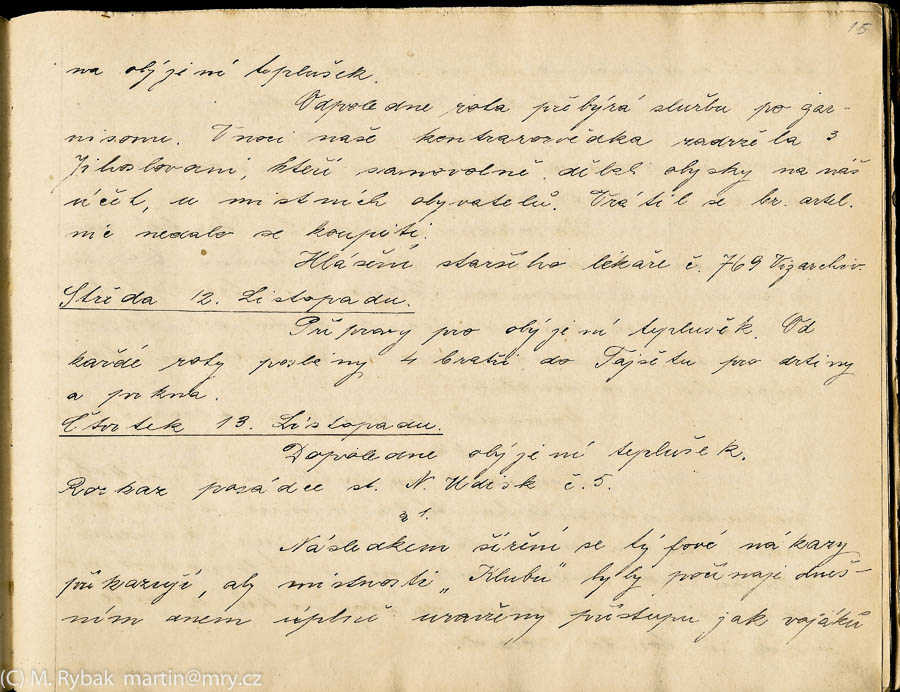 15
na obýjení teplušek.
Odpoledne rota přebýrá službu po gar-
nisonu. V noci naše kontrarozvědka zadržela 3
Jihoslovani, kteří samovolně dělali obysky na náš
účet, u místních obyvatelů. Vrátil se br. artel.
nic nedalo se koupiti.
Hlášení staršího lékaře č. 769 Viz archiv.
Středa 12. Listopadu.
Přípravy pro obýjení teplušek. Od
každé roty poslány 4 bratři do Tajšetu pro drtiny
a prkna.
Čtvrtek 13. Listopadu.
Dopoledne obýjení teplušek.
Rozkaz posádce st. N. Udisk č. 5.
§ 1.
Následkem šíření se týfové nákazy
přikazuji, aby místnosti „Klubu" byly počínaje dneš-
ním dnem úplně uzavřeny přístupu jak vojáků
(C) M. Rybak martin@mry.cz